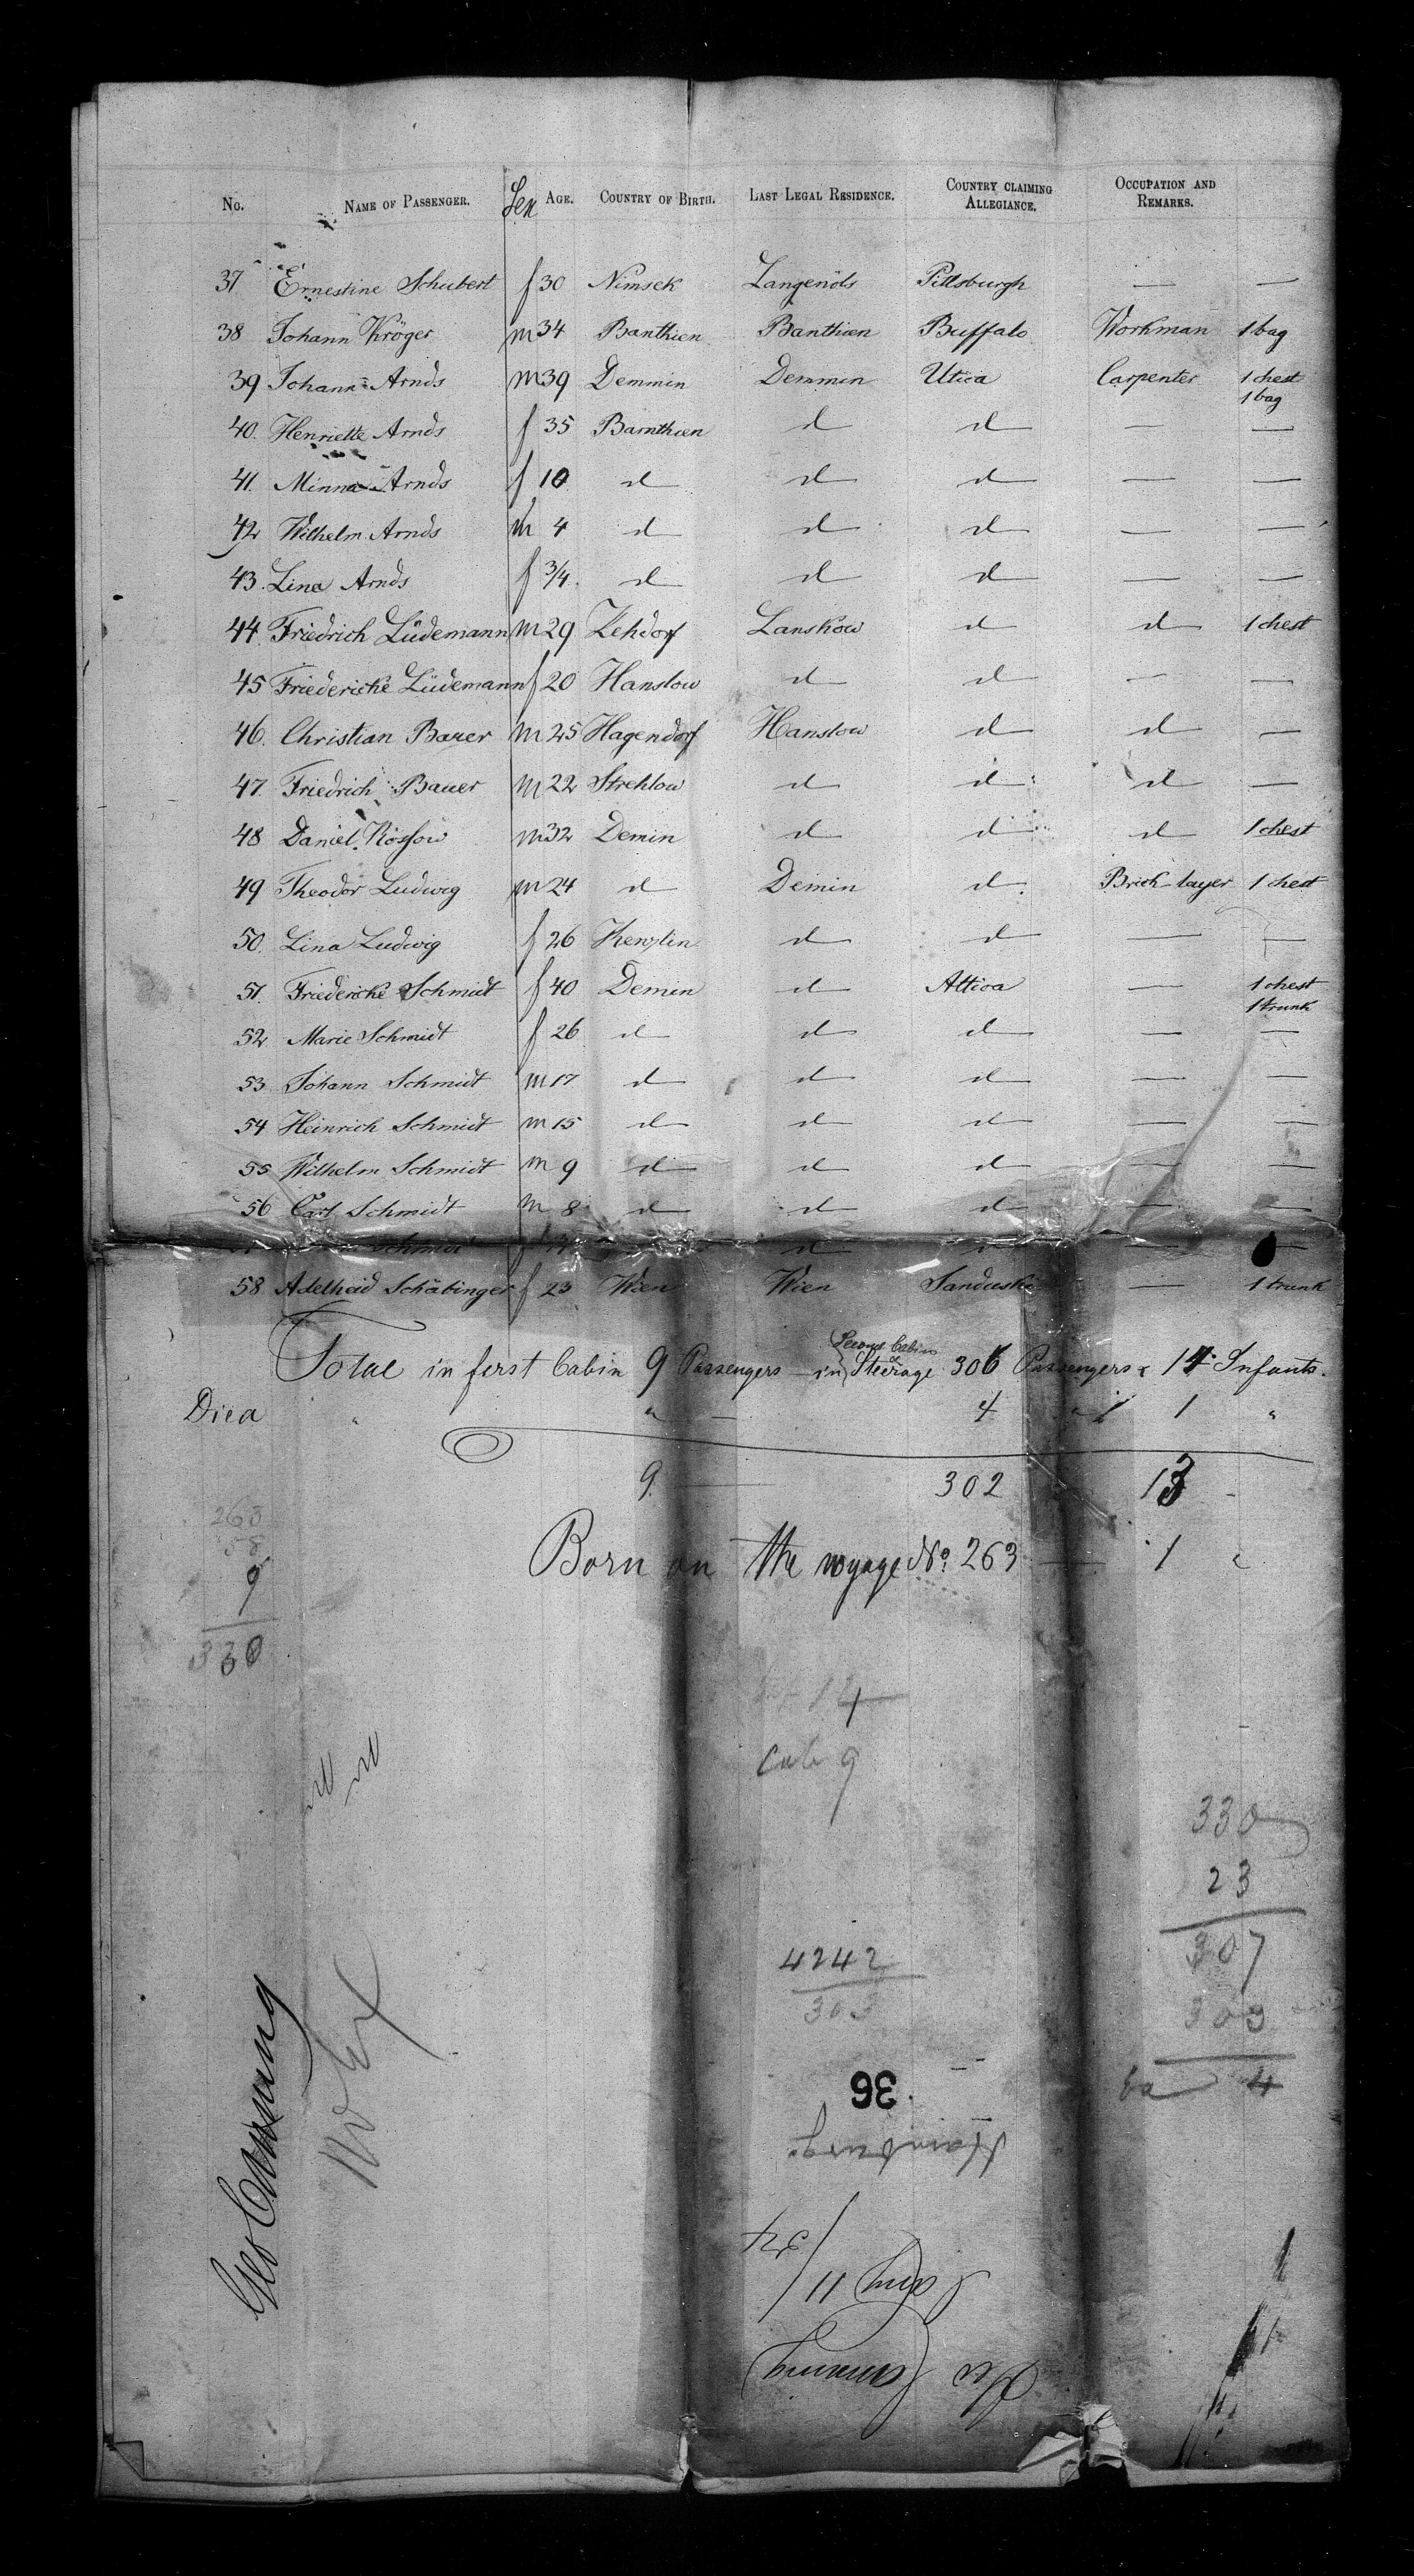 No. NAME OF PASSENGER. Sex AGE. COUNTRY OF BIRTH. LAST LEGAL RESIDENCE. COUNTRY CLAIMING ALLEGIANCE. OCCUPATION AND REMARKS.
37 Ernestine Schubert f 30 Nimsek Langenöls Pittsburgh — —
38 Johann Kröger m 34 Banthien Banthien Buffalo Workman 1 bag
39 Johann Arnds m 39 Demmin Demmin Utica Carpenter 1 chest
1 bag
40. Henriette Arnds f 35 Barnthien d d — —
41. Minna Arnds f 10 d d d — —
42 Wilhelm Arnds m 4 d d d — —
43. Lina Arnds f 3/4. d d d — —
44. Friedrich Lüdemann m 29 Zehdorf Lanskow d d 1 chest
45 Friedericke Lüdemann f 20 Hanslow d d — —
46. Christian Bauer m 25 Hagendorf Hanslow d d —
47. Friedrich Bauer m 22 Strehlow d d d —
48 Daniel Rossow m 32 Demin d d d 1 chest
49 Theodor Ludwig m 24 d Demin d Brick-layer 1 chest
50. Lina Ludwig f 26 Kenzlin d d — —
51. Friedericke Schmidt f 40 Demin d Attica — 1 chest
1 trunk
52 Marie Schmidt f 26 d d d — —
53 Johann Schmidt m 17 d d d — —
54 Heinrich Schmidt m 15 d d d — —
55 Wilhelm Schmidt m 9 d d d — —
56 Carl Schmidt m 8 d d d — —
Schmidt f d d — —
58 Adelheid Schäbinger f 23 Wien Wien Sanduski — 1 trunk
Second Cabin
Total in first Cabin 9 Passengers — in & Steerage 306 Passengers & 14 Infants.
Died " " — 4 " 1 "
9. 302 13
Born on the voyage No. 263 — 1 "
263
58
9
330
14
Cab 9
330
23
307
303
4
4242
303
36
Hamburg
Aug 11/74
Geo Canning
Geo Canning